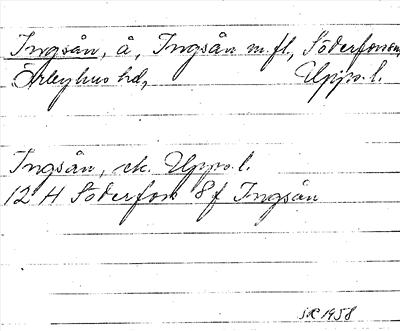 Ingsån, å, Ingsån m.fl, Söderfors sn,
Örbyhus hd, Upps. l.
Ingsån, ek. Upps. l.
12 H Söderfors 8f Ingsån
1958